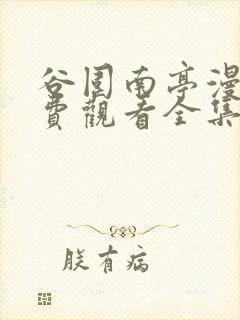 谷围南亭漫
费觀看全集
朕有病